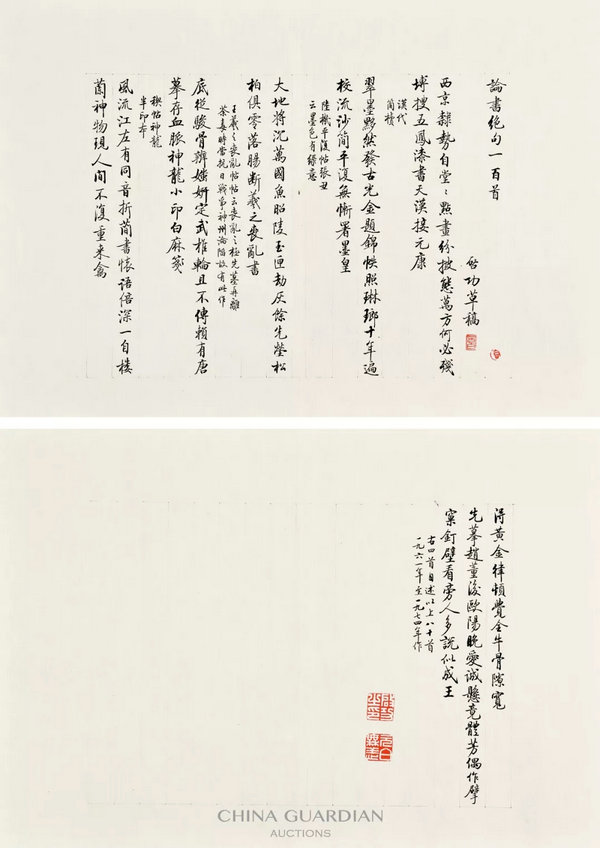 論書絕句一百首
啟功草稿
西京隸勢自堂〻點畫紛披態萬方何必殘
塼搜五鳳漆書天漢接元康
漢代
簡牘
翠墨黟然發古光金題錦帙照琳瑯十年遍
校流沙簡平復無慚署墨皇
陸機平復帖張丑
云墨色有綠意
大地將沉萬國魚昭陵玉匣劫灰餘先塋松
柏俱零落腸斷羲之喪亂書
王羲之喪亂帖帖云喪亂之極先墓再離
荼毒時當抗日戰爭神州淪陷故有此作
底從駿骨辨媸妍定武椎輪且不傳賴有唐
摹存血脈神龍小印白麻箋
禊帖神龍
半印本
風流江左有同音折簡書懷語倍深一自樓
蘭神物現人間不復重來禽
得黃金律頓覺全牛骨隙寬
先摹趙董後歐陽晚愛誠懸竟體芳偶作擘
窠釘壁看旁人多說似成王
右四首自述以上八十首
一九六一年至一九七四年作
CHINA GUARDIAN
AUCTIONS